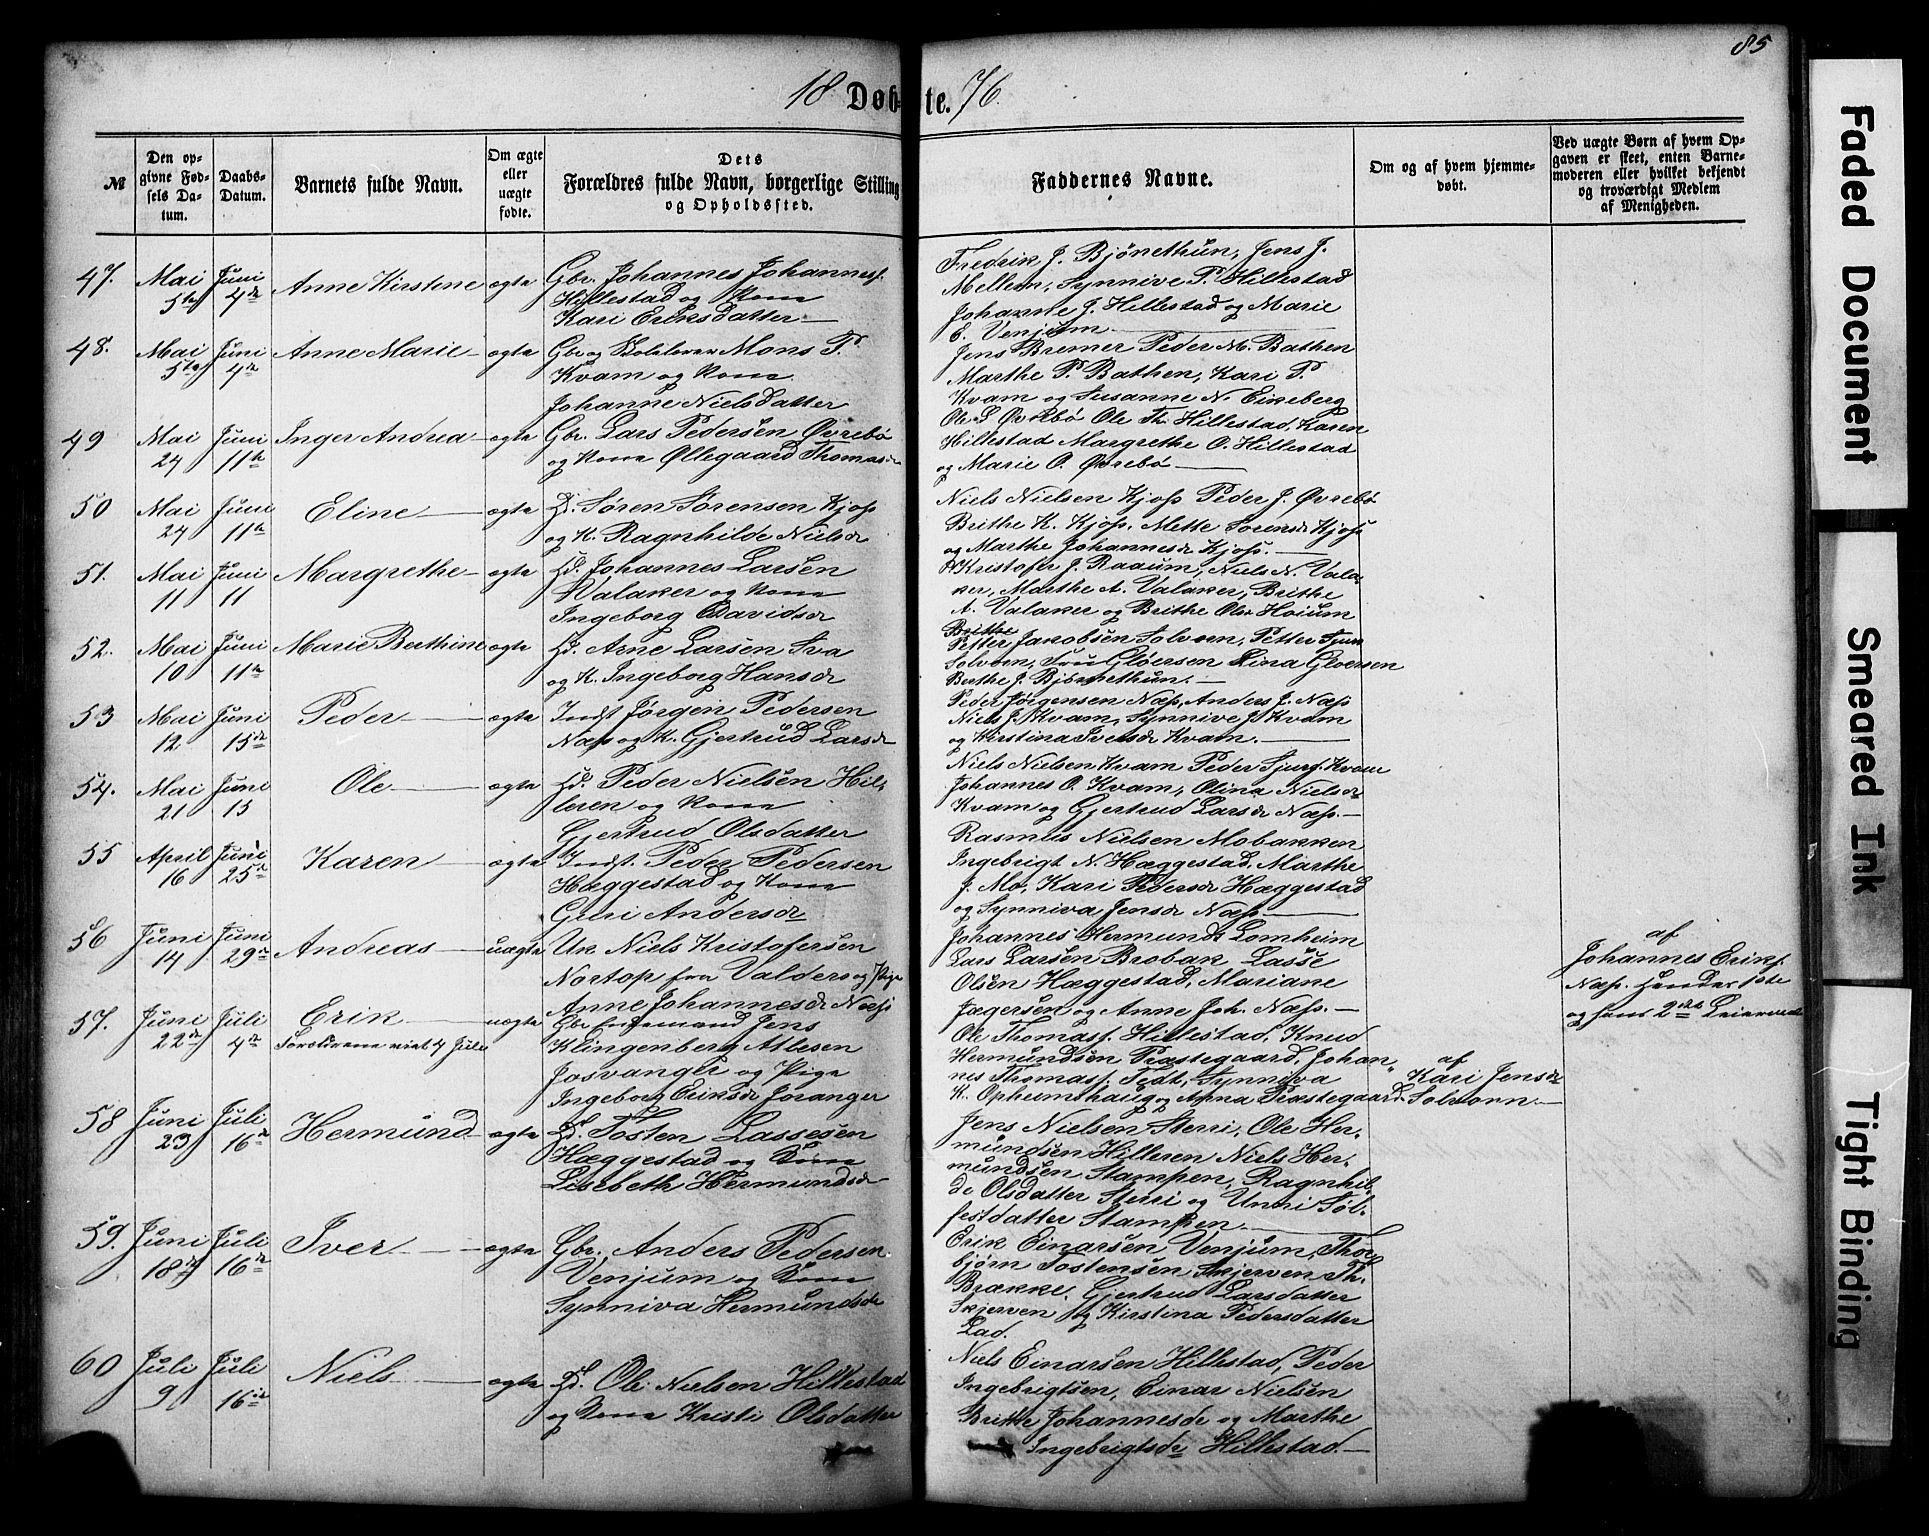 85
18 Døbte. 76.
№
Den opgivne Fødsels Datum.
Daabs-Datum.
Barnets fulde Navn.
Om ægte eller uægte fødte.
Dets Forældres fulde Navn, borgerlige Stilling og Opholdssted.
Faddernes Navne.
Om og af hvem hjemmedøbt.
Ved uægte Børn af hvem Opgaven er skeet, enten Barnemoderen eller hvilket bekjendt og troværdigt Medlem af Menigheden.
47. Mai 5te Juni 4de Anne Kirstine ægte Gbr. Johannes Johannesf.
Hillestad og Kone
Kari Eriksdatter
Fredrik J. Bjønethun, Jens J.
Mellem, Synnive P. Hillestad
Johanne J. Hillestad og Marie
E. Venjum
48. Mai 5te Juni 4de Anne Marie ægte Gbr og Skolelærer Mons P.
Kvam og Kone
Johanne Nielsdatter
Jens Bremer Peder M. Bathen
Marthe P. Bathen, Kari P.
Kvam og Susanne N. Eikeberg
49 Mai 24 Juni 11te Inger Andrea ægte Gbr. Lars Pedersen Øvrebø
og Kone Øllegaard Thomasdr
Ole L Øvrebø Ole Th. Hillestad, Karen
Hillestad Margrethe O. Hillestad
og Marie O. Øvrebø
50 Mai 24 Juni 11te Eline ægte Hd. Søren Sørensen Kjos
og K. Ragnhilde Nielsdr
Niels Nielsen Kjoss Peder J. Øvrebø
Brithe K. Kjoss, Mette Sorensdr Kjoss
og Marthe Johannesdr Kjoss.
51. Mai 11 Juni 11 Margrethe ægte Hd. Johannes Larsen
Valaker og Kone
Ingeborg Davidsdr
Kristofer J. Raaum, Niels N. Vala-
ker, Marthe A. Valaker, Brithe
A. Valaker og Brithe Olsdr Hoium
52. Mai 10 Juni 11te Marie Berthine ægte Hd. Arne Larsen Sva
og K. Ingeborg Hansdr
Brithe
Petter Jakobsen Solvorn, Petter
Solvorn, Fru Gløersen Lina Gloersen
Berthe J. Bjørnethun.
53 Mai 12 Juni 15de Peder ægte Indst Jørgen Pedersen
Næss og K. Gjertrud Larsdr
Peder Jørgensen Næss, Anders J. Næss
Niels J. Kvam, Synnive J. Kvam
og Kirstina Iversdr Kvam.
54. Mai 21 Juni 15 Ole ægte Hd. Peder Nielsen Hil-
leren og Kone
Gjertrud Olsdatter
Niels Nielsen Kvam Peder Sjurs. Kvam
Johannes O. Kvam, Olina Nielsdr
Kvam og Gjertrud Larsdr Næss.
55 April 16 Juni 25de Karen ægte Indst. Peder Pedersen
Hæggestad og Kone
Guri Andersdr
Rasmus Nielsen Mobakken
Ingebrigt N. Hæggestad, Marthe
J. Mo, Kari Pedersdr Hæggestad
og Synniva Jensdr Næss
56 Juni 14 Juni 29de Andreas uægte Uk Niels Kristofersen
Nortop fra Valders og Pige
Anne Johannesdr Næss
Johannes Hermunds Lomheim
Lars Larsen Brobak Lasse
Olsen Hæggestad, Mariane
Jagersen og Anne Joh. Næss.
af
Johannes Eriks.
Næss. Hendes 1ste
og hans 2det Leiermaal
57. Juni 22de Juli 4de Erik
Forældrene viet 4 Juli
uægte Gbr Enkemand Jens
Klingenberg Atlesen
Josvanger og Pige
Ingeborg Eriksdr Joranger
Ole Thomass. Hillestad, Knud
Hermundsen Prestegaard, Johan-
nes Thomass. Tedt, Synniva
K. Opheimshaug og Anna Præstegaard.
af
Kari Jensdr
Solvorn
58 Juni 23 Juli 16de Hermund ægte Hd. Tosten Lassesen
Hæggestad og Kone
Lisebeth Hermundsdr
Jens Nielsen Sterri, Ole Her-
mundsen Hilleren Niels Her-
mundsen Stampen, Ragnhil-
de Olsdatter Sterri og Unni Søl-
festdatter Stampen
59. Juni 18de Juli 16de Iver ægte Gbr. Anders Pedersen
Venjum og Kone
Synniva Hermundsdr
Erik Einarsen Venjum, Thor-
bjørn Tostensen Skjerven Th.
Brække, Gjertrud Larsdatter
Skjerven og Kirstina Pedersdatter
Lad.
60 Juli 9 Juli 16de Niels ægte Hd. Ole Nielsen Hillestad
og Kone Kristi Olsdatter
Niels Einarsen Hillestad, Peder
Ingebrigtsen, Einar Nielsen
Brithe Johannesdr og Marthe
Ingebrigtsdr Hillestad.
Faded Document
Smeared Ink
Tight Binding